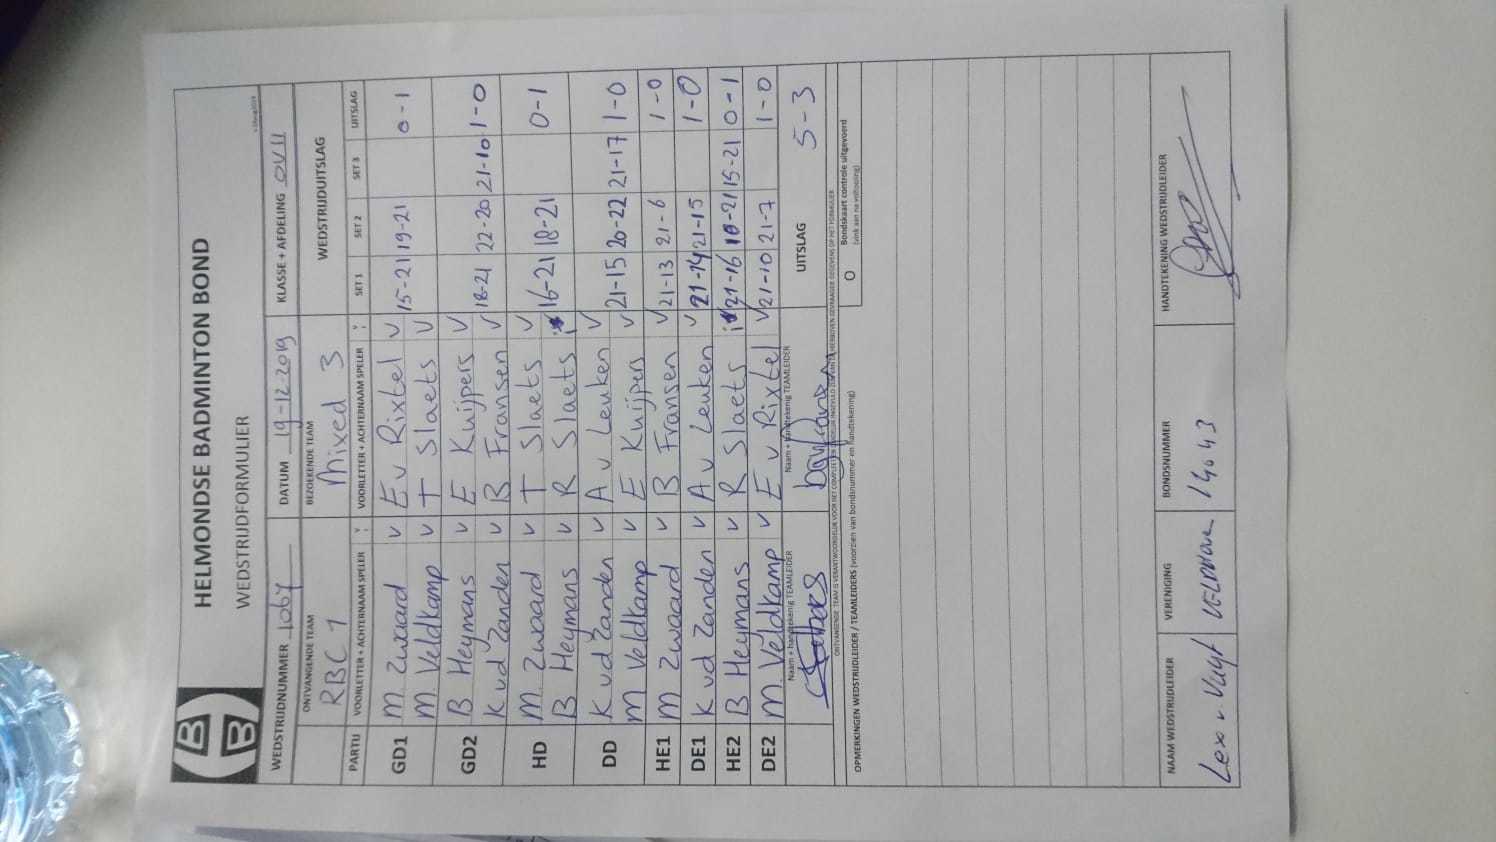 HELMONDSE BADMINTON BOND
WEDSTRIJDFORMULIER
HBB
WEDSTRIJDNUMMER 1067 DATUM 19-12-2019 KLASSE + AFDELING OV II
ONTVANGENDE TEAM BEZOEKENDE TEAM WEDSTRIJDUITSLAG
RBC 1 Mixed 3
PARTIJ VOORLETTER + ACHTERNAAM SPELER VOORLETTER + ACHTERNAAM SPELER SET 1 SET 2 SET 3 UITSLAG
GD1 M. Zwaard v E v Rixtel v 15-21 19-21 0-1
M. Veldkamp v T Slaets v
GD2 B Heymans v E Kuijpers v 18-21 22-20 21-10 1-0
K vd Zanden v B Fransen v
HD M. Zwaard v T Slaets v 16-21 18-21 0-1
B Heymans v R Slaets
DD K vd Zanden v A v Leuken v 21-15 20-22 21-17 1-0
M Veldkamp v E Kuijpers v
HE1 M Zwaard v B Fransen v 21-13 21-6 1-0
DE1 K vd Zanden v A v Leuken v 21-14 21-15 1-0
HE2 B Heymans v R Slaets 21-16 18-21 15-21 0-1
DE2 M. Veldkamp v E v Rixtel v 21-10 21-7 1-0
Naam + handtekenig TEAMLEIDER Naam + handtekenig TEAMLEIDER UITSLAG 5-3
ONTVANGENDE TEAM IS VERANTWOORDELIJK VOOR HET COMPLEET
O Bondskaart controle uitgevoerd
(vink aan na voltooiing)
OPMERKINGEN WEDSTRIJDLEIDER / TEAMLEIDERS (voorzien van bondsnummer en handtekening)
NAAM WEDSTRIJDLEIDER VERENIGING BONDSNUMMER HANDTEKENING WEDSTRIJDLEIDER
Lex v.